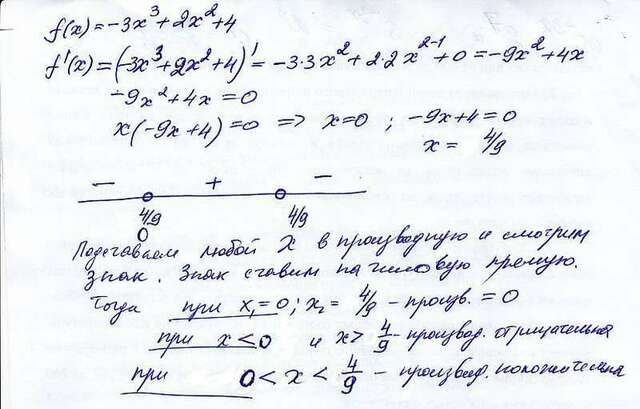 f(x)=-3x³+2x²+4
f'(x)=(-3x³+2x²+4)'=-3·3x²+2·2x²⁻¹+0=-9x²+4x
-9x²+4x=0
x(-9x+4)=0 => x=0 ; -9x+4=0
x= 4/9
- + -
4/9 4/9
0
Подставляем любой x в производную и смотрим
знак. Знак ставим на числовую прямую.
Тогда при x₁=0; x₂= 4/9 - произв. =0
при x<0 и x> 4/9 - производ. отрицательна
при 0<x< 4/9 - производ. положительна